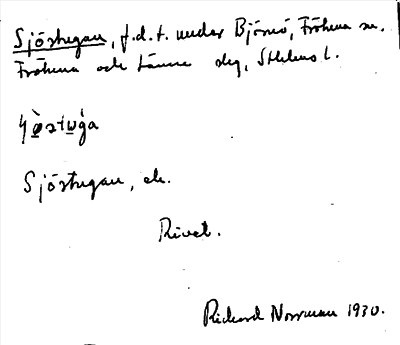 Sjöstugan, f.d.t. under Björnö, Frötuna sn.
Frötuna och Länna skg, Sthlms l.
Sjöstugan, ek.
Rivet.
Richard Norrman 1930.